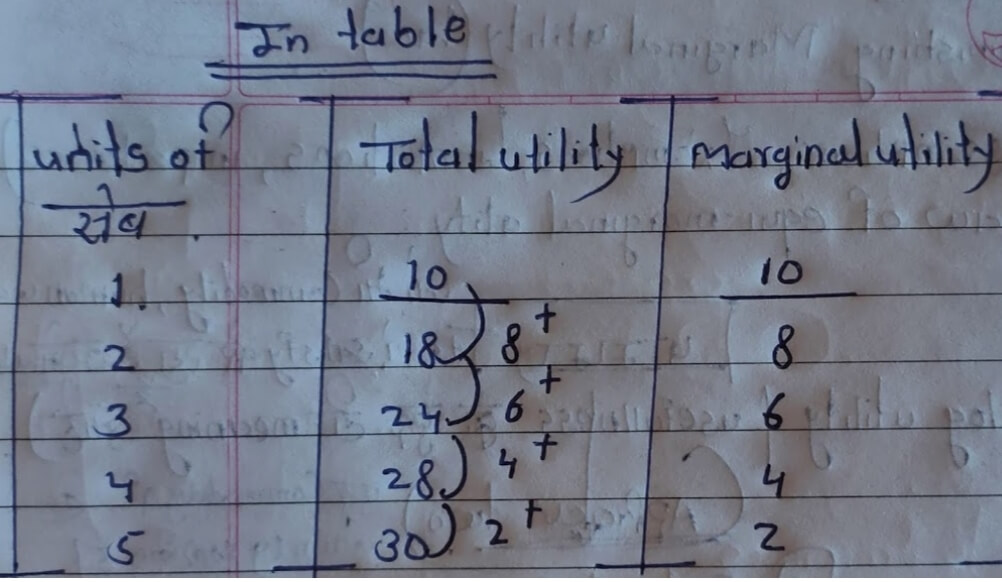 In table
units of Total utility Marginal utility
सेव.
1. 10 10
2 18 8+ 8
3 24 6+ 6
4 28 4+ 4
5 30 2+ 2